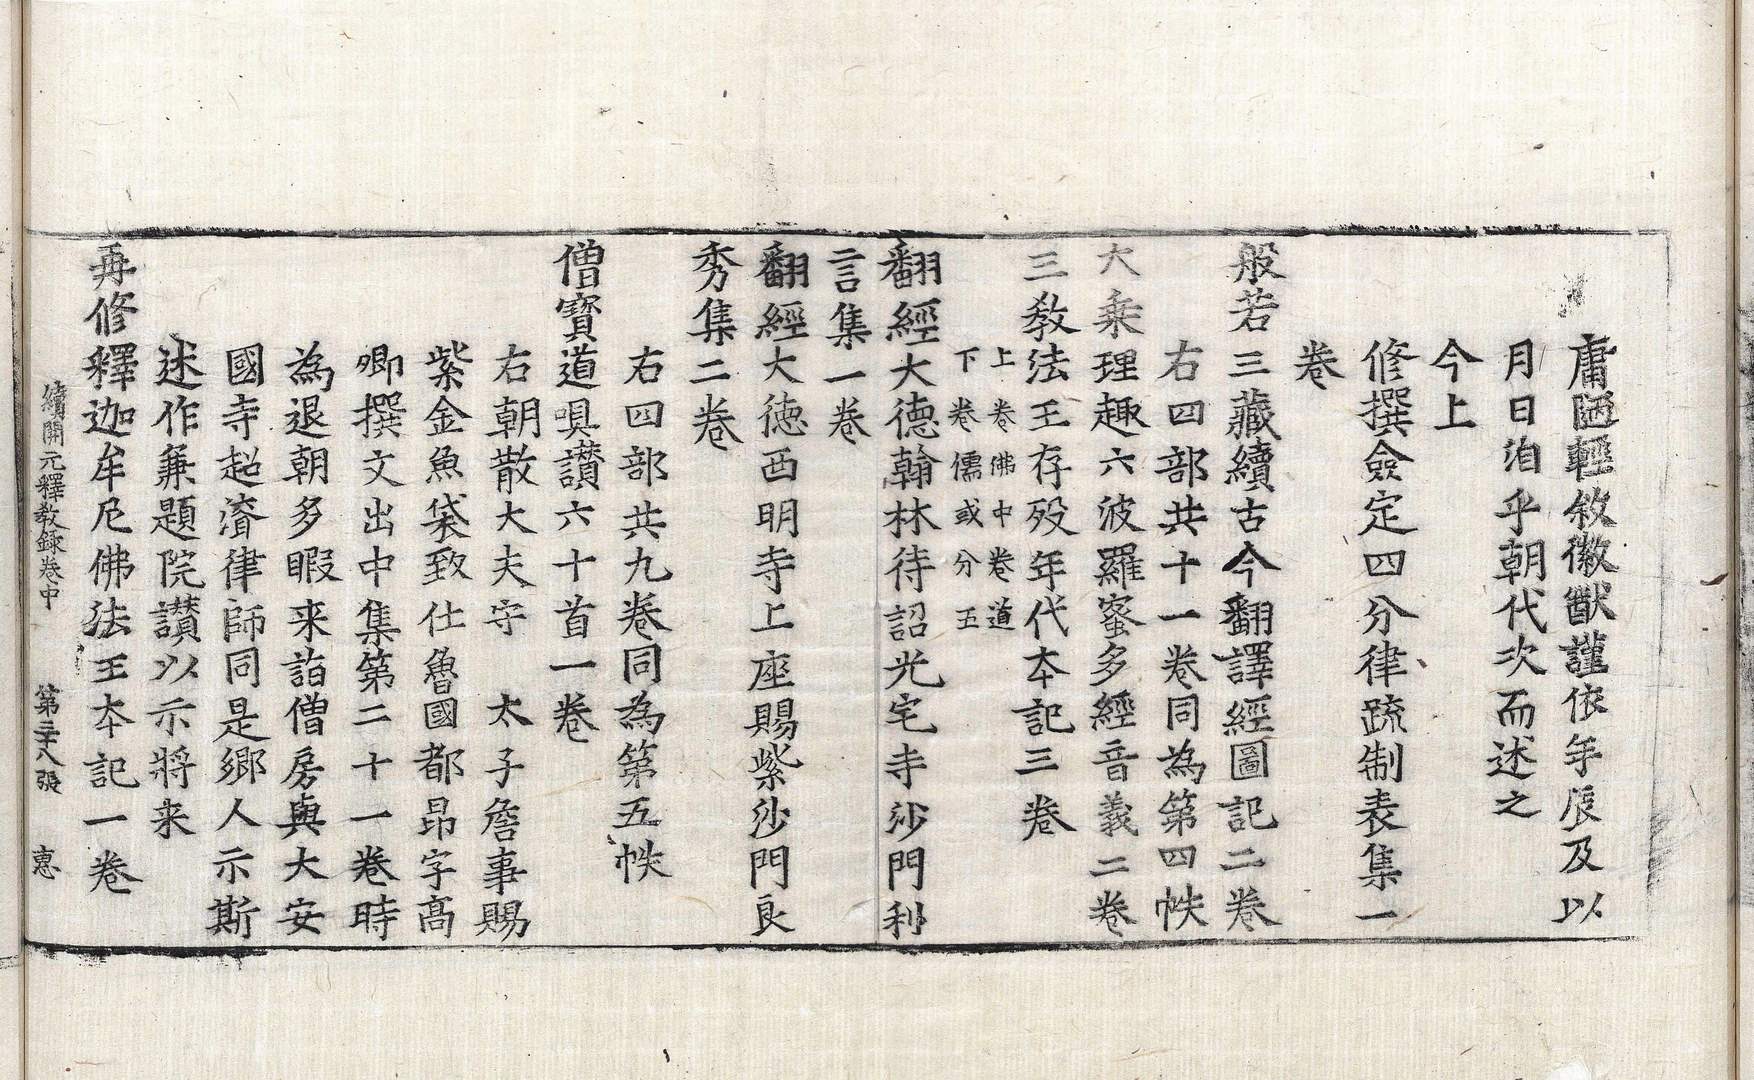 庸陋輕敘徽猷謹依年辰及以
月日洎乎朝代次而述之
今上
修撰僉定四分律䟽制表集一
卷
般若三藏續古今翻譯經圖記二卷
右四部共十一卷同為第四帙
大乘理趣六波羅蜜多經音義二卷
三教法王存歿年代本記三卷
上卷佛中卷道
下卷儒或分五
翻經大德翰林待詔光宅寺沙門利
言集一卷
翻經大德西明寺上座賜紫沙門良
秀集二卷
右四部共九卷同為第五帙
僧寶道唄讚六十首一卷
右朝散大夫守　太子詹事賜
紫金魚袋致仕魯國都昂字高
卿撰文出中集第二十一卷時
為退朝多暇来詣僧房與大安
國寺超濟律師同是鄉人示斯
述作兼題院讃以示將来
再修釋迦牟尼佛法王本記一卷
續開元釋教録卷中　第三十八張　惠